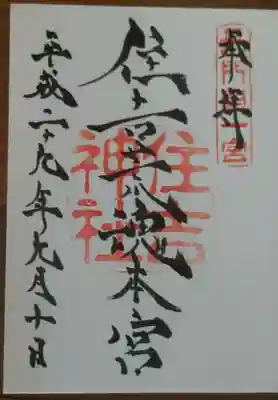 奉拝
住吉荒魂本宮
住吉神社
平成二十九年九月十日